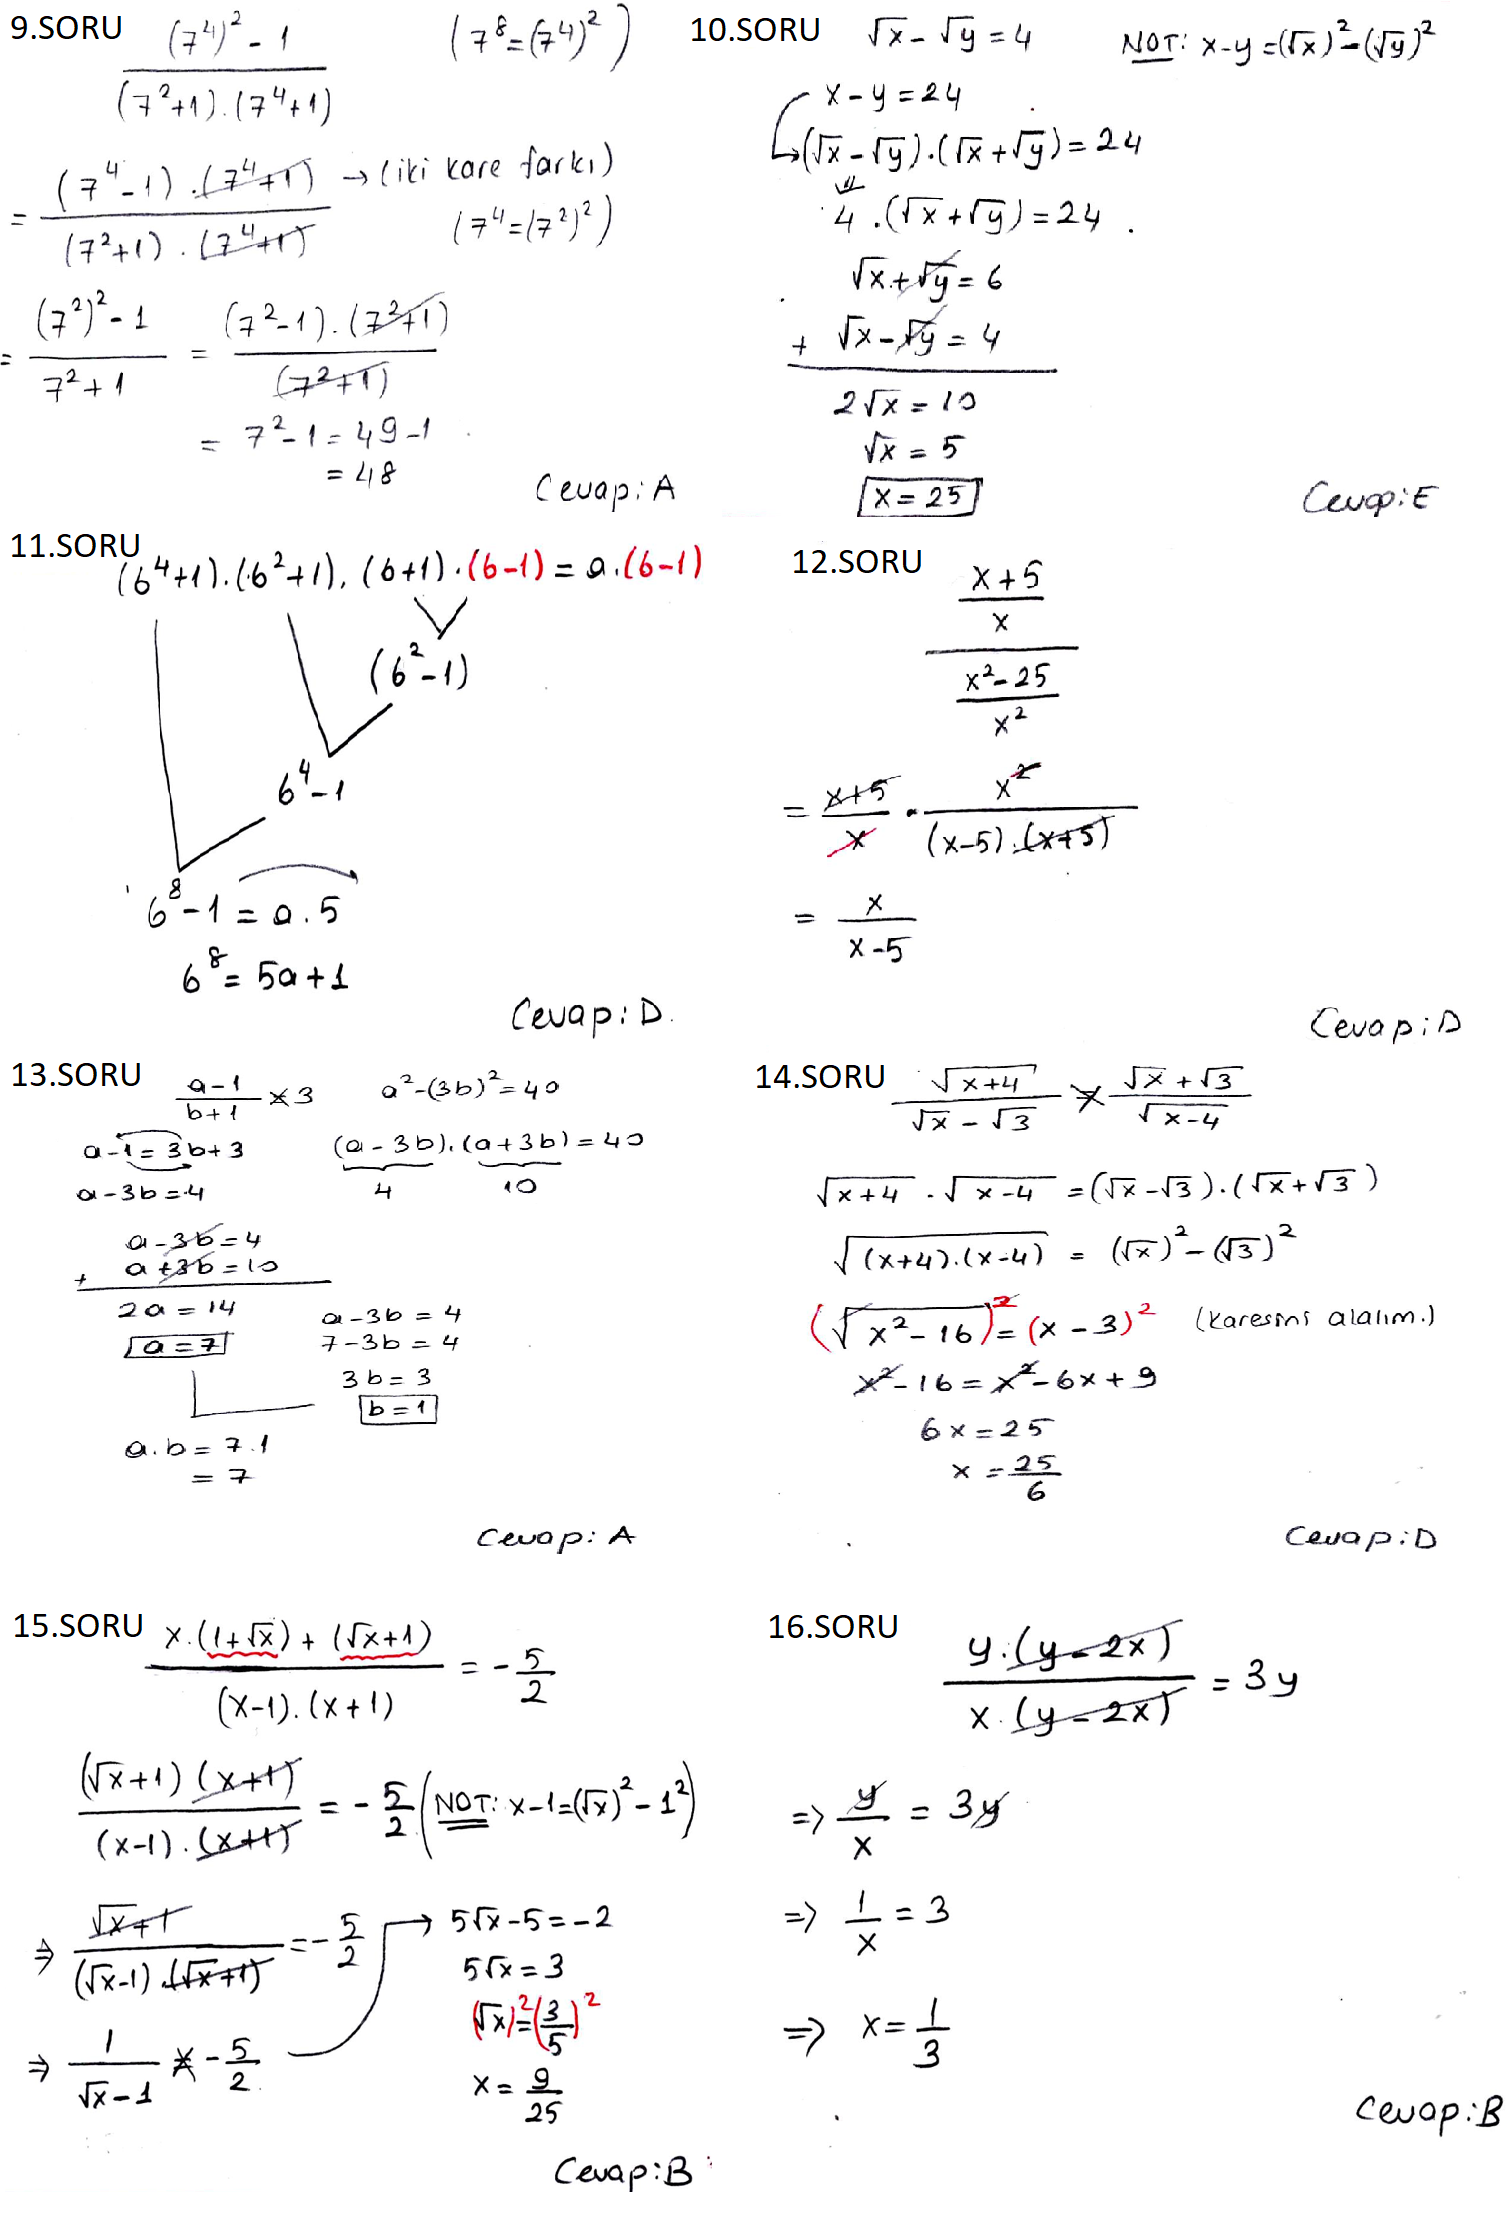 9.SORU
(7⁴)² - 1 / (7²+1).(7⁴+1)
(7⁸=(7⁴)²)
= (7⁴-1).(7⁴+1) / (7²+1).(7⁴+1) → (iki kare farkı)
(7⁴=(7²)²)
= (7²)² - 1 / 7²+1 = (7²-1).(7²+1) / (7²+1)
= 7²-1 = 49-1
= 48
Cevap: A
10.SORU
√x - √y = 4
NOT: x-y = (√x)²-(√y)²
x - y = 24
(√x - √y).(√x + √y) = 24
4.(√x + √y) = 24
√x + √y = 6
+ √x - √y = 4
2√x = 10
√x = 5
x = 25
Cevap: E
11.SORU
(6⁴+1).(6²+1).(6+1).(6-1) = a.(6-1)
(6²-1)
6⁴-1
6⁸-1 = a.5
6⁸ = 5a+1
Cevap: D.
12.SORU
x+5 / x
x²-25 / x²
= x+5 / x . x² / (x-5).(x+5)
= x / x-5
Cevap: D
13.SORU
a-1 / b+1 = 3
a²-(3b)² = 40
a-1 = 3b+3
(a-3b).(a+3b) = 40
a-3b = 4
4 10
a-3b = 4
+ a+3b = 10
2a = 14
a = 7
a-3b = 4
7-3b = 4
3b = 3
b = 1
a.b = 7.1
= 7
Cevap: A
14.SORU
√x+4 / √x - √3 = √x + √3 / √x-4
√x+4 . √x-4 = (√x-√3).(√x+√3)
√(x+4).(x-4) = (√x)²-(√3)²
(√x²-16)² = (x-3)² (Karesini alalım.)
x²-16 = x²-6x+9
6x = 25
x = 25/6
Cevap: D
15.SORU
x.(1+√x) + (√x+1) / (x-1).(x+1) = -5/2
(√x+1)(x+1) / (x-1).(x+1) = -5/2 (NOT: x-1=(√x)²-1²)
⇒ √x+1 / (√x-1).(√x+1) = -5/2
⇒ 1 / √x-1 = -5/2
→ 5√x-5 = -2
5√x = 3
(√x)² = (3/5)²
x = 9/25
Cevap: B
16.SORU
y.(y-2x) / x.(y-2x) = 3y
⇒ y/x = 3y
⇒ 1/x = 3
⇒ x = 1/3
Cevap: B